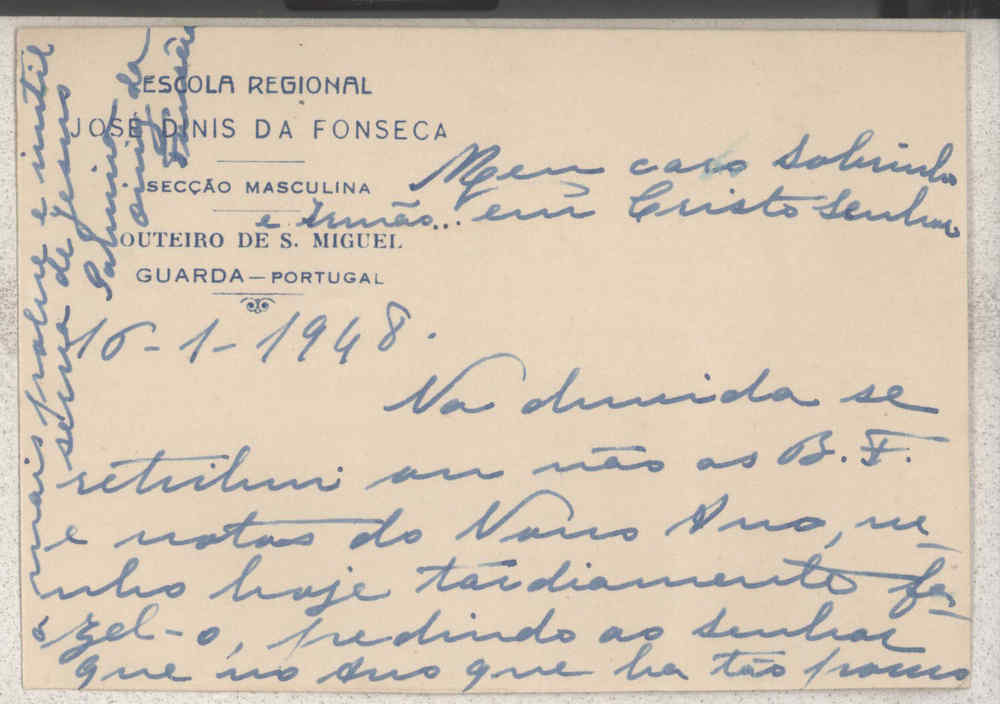 ESCOLA REGIONAL
JOSÉ DINIS DA FONSECA
SECÇÃO MASCULINA
OUTEIRO DE S. MIGUEL
GUARDA — PORTUGAL
Meu caro Sobrinho
e Irmão... em Cristo Senhor
16-1-1948.
Na duvida se
retribui ou não as B. F.
e votos do Novo Ano, ve-
nho hoje tardiamente fa-
zel-o, pedindo ao Senhor
que no Ano que ha tão pouco
a mais pobre e inutil
serva de Jesus
Palmira
Diniz da
Fonsêca